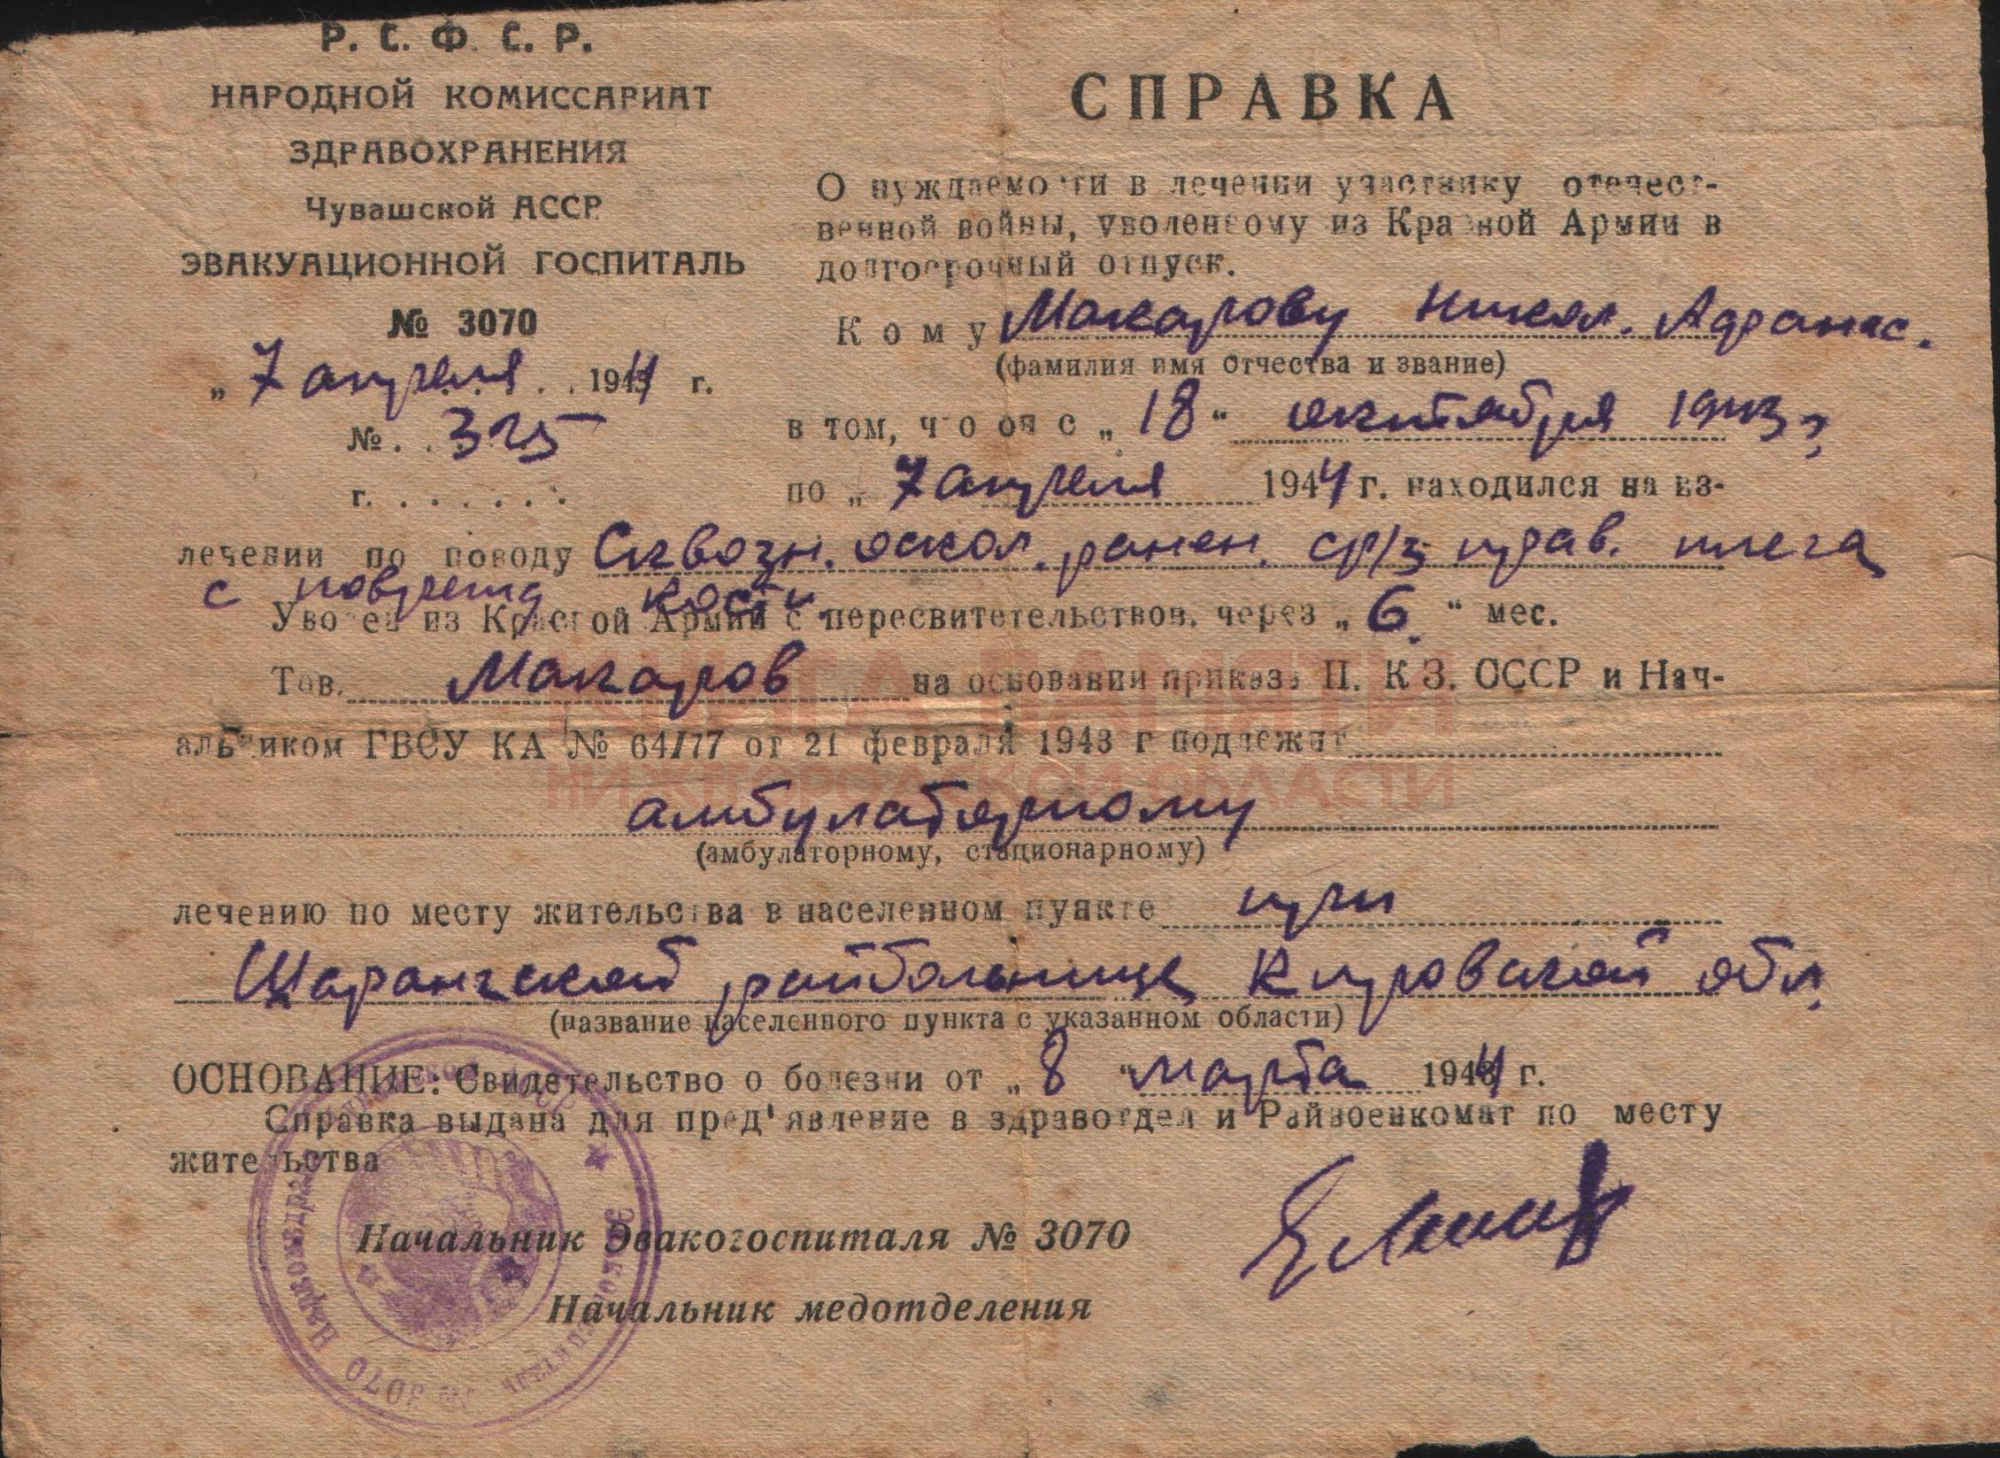 Р. С. Ф. С. Р.
НАРОДНОЙ КОМИССАРИАТ
ЗДРАВОХРАНЕНИЯ
Чувашской АССР
ЭВАКУАЦИОННОЙ ГОСПИТАЛЬ
№ 3070
„ 7 апреля . . 1944 г.
№ . . 325
г. . . . . . .
СПРАВКА
О нуждаемости в лечении участнику отечест-
венной войны, уволенному из Красной Армии в
долгосрочный отпуск.
Кому Макарову Никол. Афанас.
(фамилия имя отчества и звание)
в том, что он с „ 18 “ октября 1943 г
по „ 7 апреля 1944 г. находился на из-
лечении по поводу Сквозн. оскол. ранен. ср/3 прав. плеча
с поврежд кости.
Уволен из Красной Армии с пересвитетельствов. через „ 6. “ мес.
Тов. Макаров на основании приказа Н. К З. СССР и Нач-
альником ГВСУ КА № 64/77 от 21 февраля 1943 г подлежит
амбулаторному
(амбулаторному, стационарному)
лечению по месту жительства в населенном пункте при
Шарангской райбольнице Кировской обл.
(название населенного пункта с указанном области)
ОСНОВАНИЕ: Свидетельство о болезни от „ 8 “ марта 1944 г.
Справка выдана для пред'явление в здравотдел и Райвоенкомат по месту
жительства
Начальник Эвакогоспиталя № 3070
Начальник медотделения
КНИГА ПАМЯТИ
НИЖЕГОРОДСКОЙ ОБЛАСТИ
Наркомздрав
№ 3070